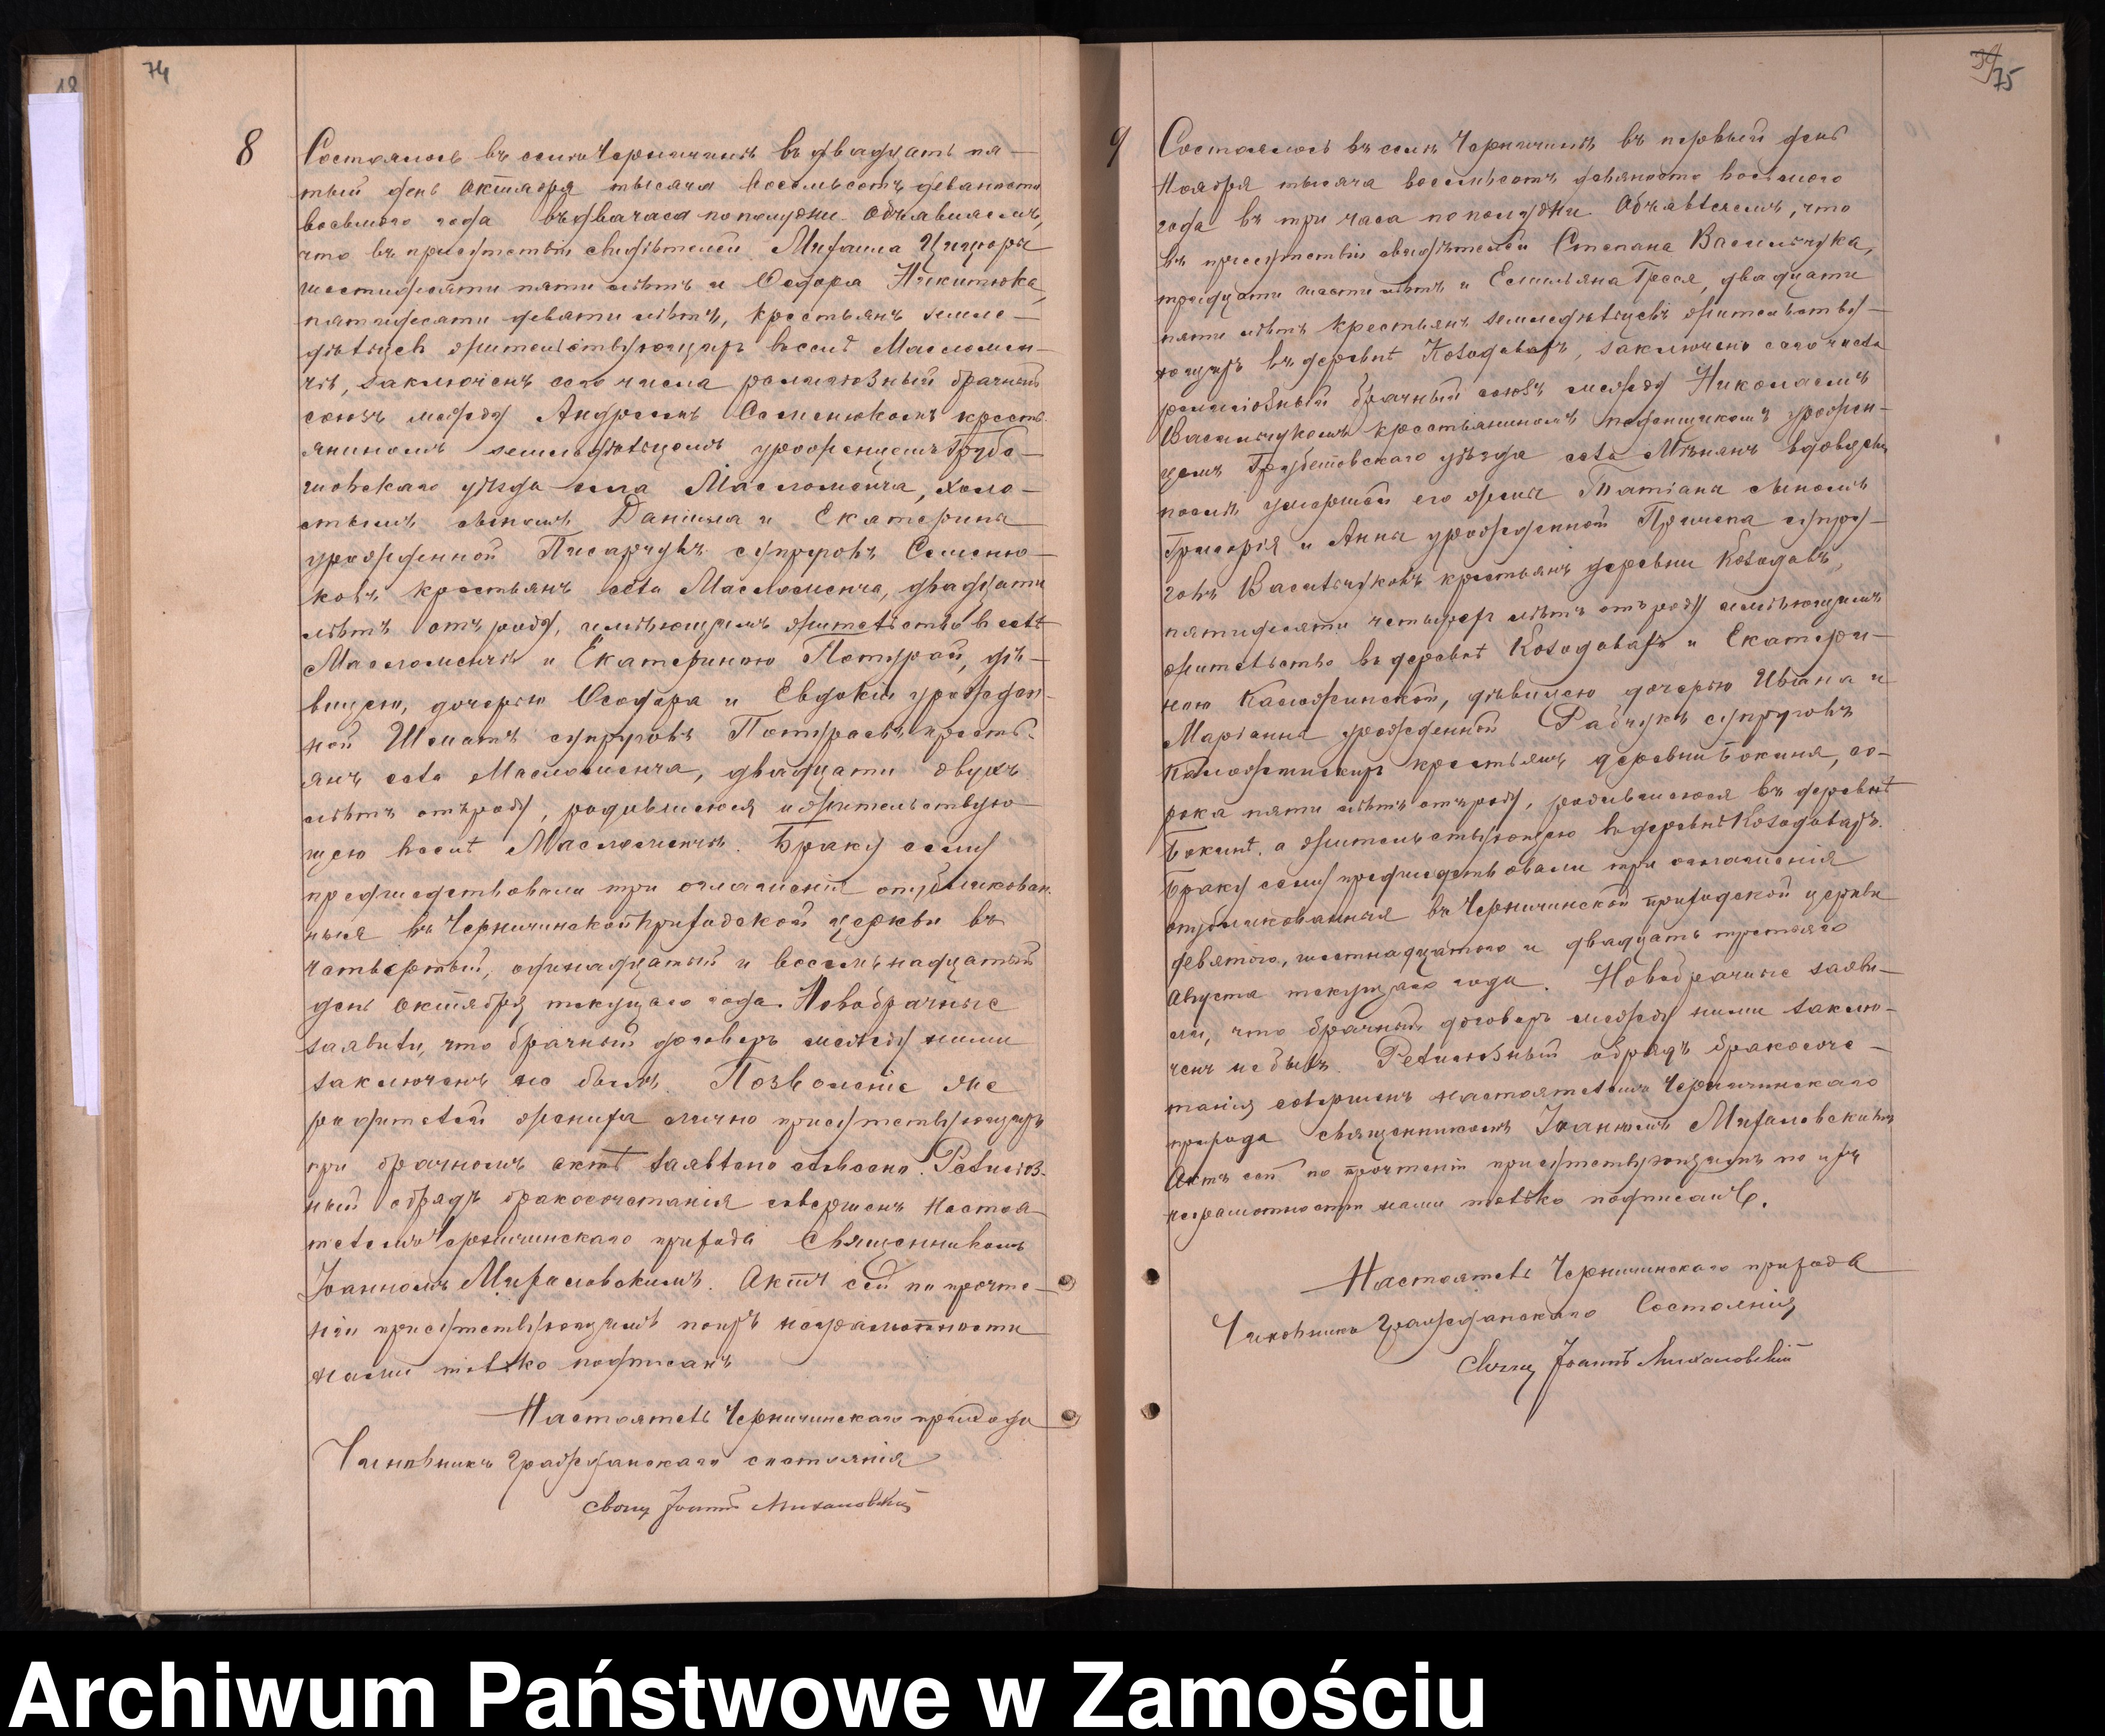 74
8
Состоялось въ селѣ Черничинѣ въ двадцать пя-
тый день Октября тысяча восемьсотъ девяносто
восьмого года въ два часа по полудни. Объявляемъ,
что въ присутствіи свидѣтелей Михаила Цицоры
шестидесяти пяти лѣтъ и Ѳедора Никитюка,
пятидесяти девяти лѣтъ, крестьянъ земле-
дѣльцевъ жительствующихъ въ селѣ Масломен-
чѣ, заключенъ сего числа религіозный брачный
союзъ между Андреемъ Семенюкомъ кресть-
яниномъ земледѣльцемъ уроженцемъ Грубе-
шовскаго уѣзда села Масломенча, холо-
стымъ сыномъ Даніила и Екатерины
урожденной Писарчукъ супруговъ Семеню-
ковъ крестьянъ села Масломенча, двадцати
лѣтъ отъ роду, имѣющимъ жительство въ селѣ
Масломенчѣ и Екатериною Потурай, дѣ-
вицею, дочерью Ѳеодора и Евдокіи урожден-
ной Шематъ супруговъ Потураевъ кресть-
янъ села Масломенча, двадцати двухъ
лѣтъ отъ роду, родившеюся и жительствую-
щею въ селѣ Масломенчѣ. Браку сему
предшедствовали три оглашенія опубликован-
ныя въ Черничинской приходской церкви въ
четвертый, одинадцатый и восемьнадцатый
день Октября текущаго года. Новобрачные
заявили, что брачный договоръ между ними
заключенъ не былъ. Позволеніе же
родителей жениха лично присутствующихъ
при брачномъ актѣ заявлено словесно. Религіоз-
ный обрядъ бракосочетанія совершенъ Настоя-
телемъ Черничинскаго прихода Священникомъ
Іоанномъ Михаловскимъ. Актъ сей по прочте-
ніи присутствующимъ по ихъ неграмотности
нами только подписанъ
Настоятель Черничинскаго прихода
Чиновникъ Гражданскаго состоянія
Свящ Іоаннъ Михаловскій
75
9
Состоялось въ селѣ Черничинѣ въ первый день
Ноября тысяча восемьсотъ девяносто восьмого
года въ три часа по полудни. Объявляемъ, что
въ присутствіи свидѣтелей Степана Васильчука,
тридцати шести лѣтъ и Емильяна Греся, двадцати
пяти лѣтъ крестьянъ земледѣльцевъ жительству-
ющихъ въ деревнѣ Козодавахъ, заключенъ сего числа
религіозный брачный союзъ между Николаемъ
Васильчукомъ крестьяниномъ поденщикомъ урожен-
цемъ Грубешовскаго уѣзда села Мѣнянъ вдовцемъ
послѣ умершей его жены Татіаны сыномъ
Григорія и Анны урожденной Примспа супру-
говъ Васильчуковъ крестьянъ деревни Козодавъ,
пятидесяти четырехъ лѣтъ отъ роду имѣющимъ
жительство въ деревнѣ Козодавахъ и Екатери-
ною Каложинской, дѣвицею дочерью Ивана и
Маріанны урожденной Рабчукъ супруговъ
Каложинскихъ крестьянъ деревни Бокиня, со-
рока пяти лѣтъ отъ роду, родившеюся въ деревнѣ
Бокинѣ, а жительствующею въ деревнѣ Козодавахъ.
Браку сему предшедствовали три оглашенія
опубликованныя въ Черничинской приходской церкви
девятого, шестнадцатого и двадцать третьяго
Августа текущаго года. Новобрачные заяви-
ли, что брачный договоръ между ними заклю-
ченъ не былъ. Религіозный обрядъ бракосоче-
танія совершенъ настоятелемъ Черничинскаго
прихода священникомъ Іоанномъ Михаловскимъ
Актъ сей по прочтеніи присутствующимъ по ихъ
неграмотности нами только подписанъ.
Настоятель Черничинскаго прихода
Чиновникъ Гражданскаго Состоянія
Свящ Іоаннъ Михаловскій
Archiwum Państwowe w Zamościu